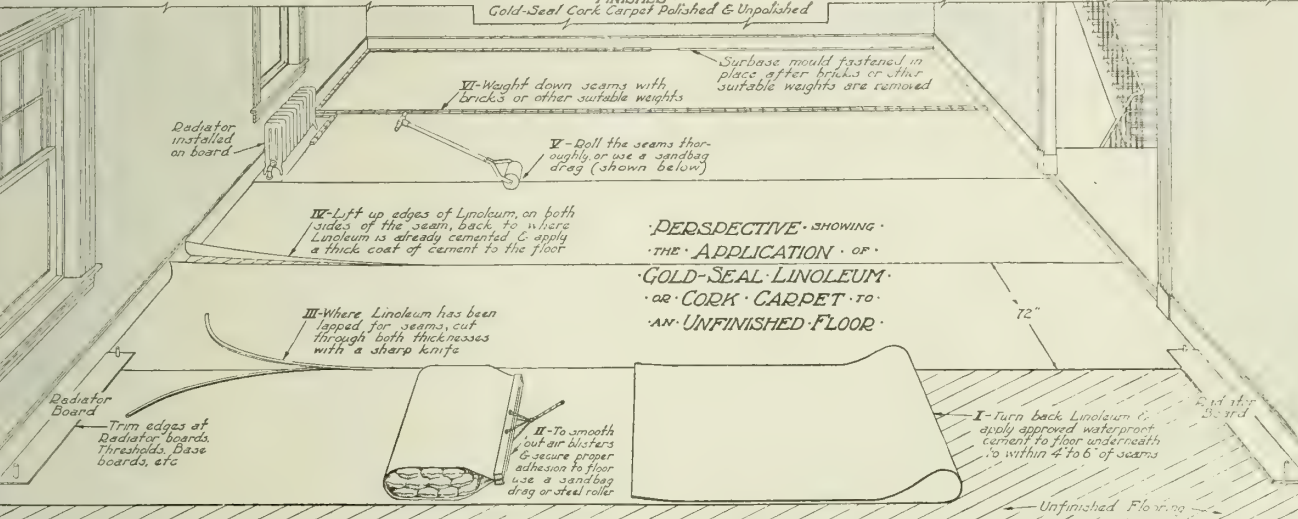 FINISHED
Gold-Seal Cork Carpet Polished & Unpolished
Surbase mould fastened in
place after bricks or other
suitable weights are removed
VI-Weight down seams with
bricks or other suitable weights
Radiator
installed
on board
V-Roll the seams thor-
oughly, or use a sandbag
drag (shown below)
IV-Lift up edges of Linoleum, on both
sides of the seam, back to where
Linoleum is already cemented & apply
a thick coat of cement to the floor
·PERSPECTIVE·SHOWING·
·THE·APPLICATION·OF·
·GOLD-SEAL·LINOLEUM·
·OR·CORK·CARPET·TO·
·AN·UNFINISHED·FLOOR·
72"
III-Where Linoleum has been
lapped for seams, cut
through both thicknesses
with a sharp knife
Radiator
Board
Trim edges at
Radiator boards,
Thresholds, Base
boards, etc
II-To smooth
out air blisters
& secure proper
adhesion to floor
use a sandbag
drag or steel roller
I-Turn back Linoleum &
apply approved waterproof
cement to floor underneath
to within 4" to 6" of seams
Radiator
Board
Unfinished Flooring